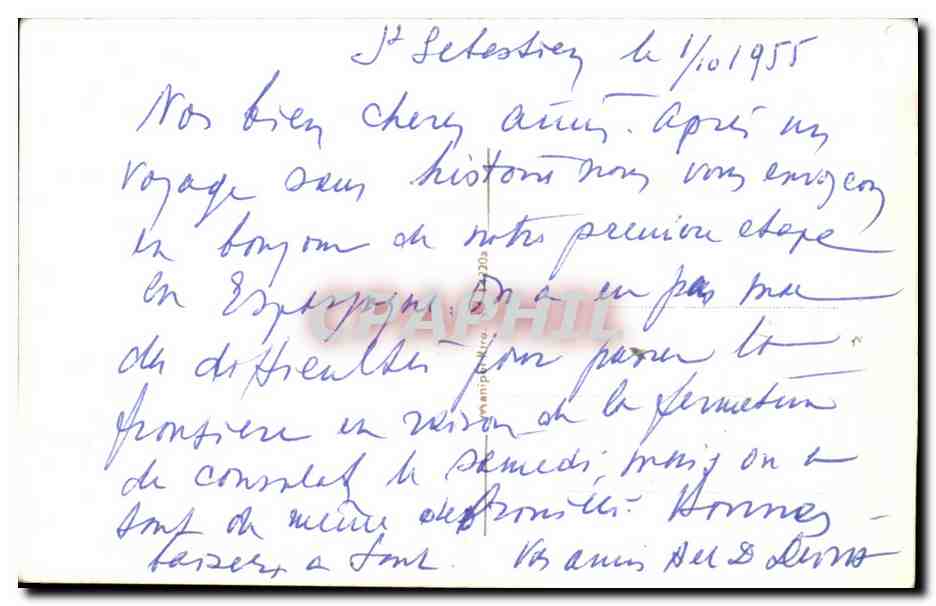 St Sebastien le 1/10 1955
Nos bien chers amis. Après un
voyage sans histoire nous vous envoyons
un bonjour de notre première etape
en Espagne. On a eu pas mal
des difficultés pour passer la
frontière en raison de la fermeture
de consulat le samedi, mais on a
tout de même débrouillé. Bonnes
baisers a tout. Vos amis A et D
CPAPHIL
Manipel Kiro